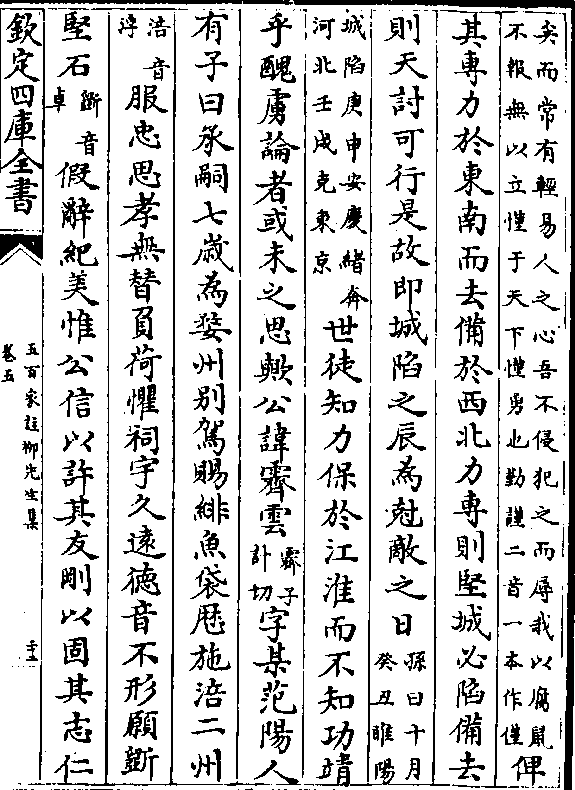 矣而常有輕易人之心吾不侵犯之而辱我以腐鼠
不報無以立慬于天下慬勇也勤謹二音一本作僅
俾
其專力於東南而去備於西北力專則堅城必陷備去
則天討可行是故即城陷之辰為尅敵之日
孫曰十月
癸丑睢陽
城陷庚申安慶緒奔
河北壬戌克東京
世徒知力保於江淮而不知功靖
乎醜虜論者或未之思歟公諱霽雲
霽子
計切
字某范陽人
有子曰承嗣七歲為婺州別駕賜緋魚袋歷施涪二州
涪音
浮
服忠思孝無替負荷懼祠宇久遠德音不形願斵
堅石
斵音
卓
假辭紀美惟公信以許其友剛以固其志仁
欽定四庫全書
五百家註柳先生集
卷五